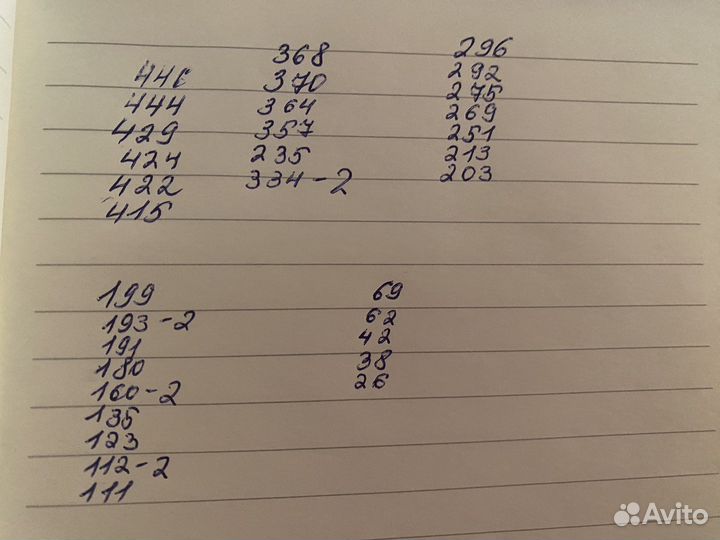 446
444
429
424
422
415
368
370
364
357
235
334-2
296
292
275
269
251
213
203
199
193-2
191
180
160-2
135
123
112-2
111
69
62
42
38
26
Avito